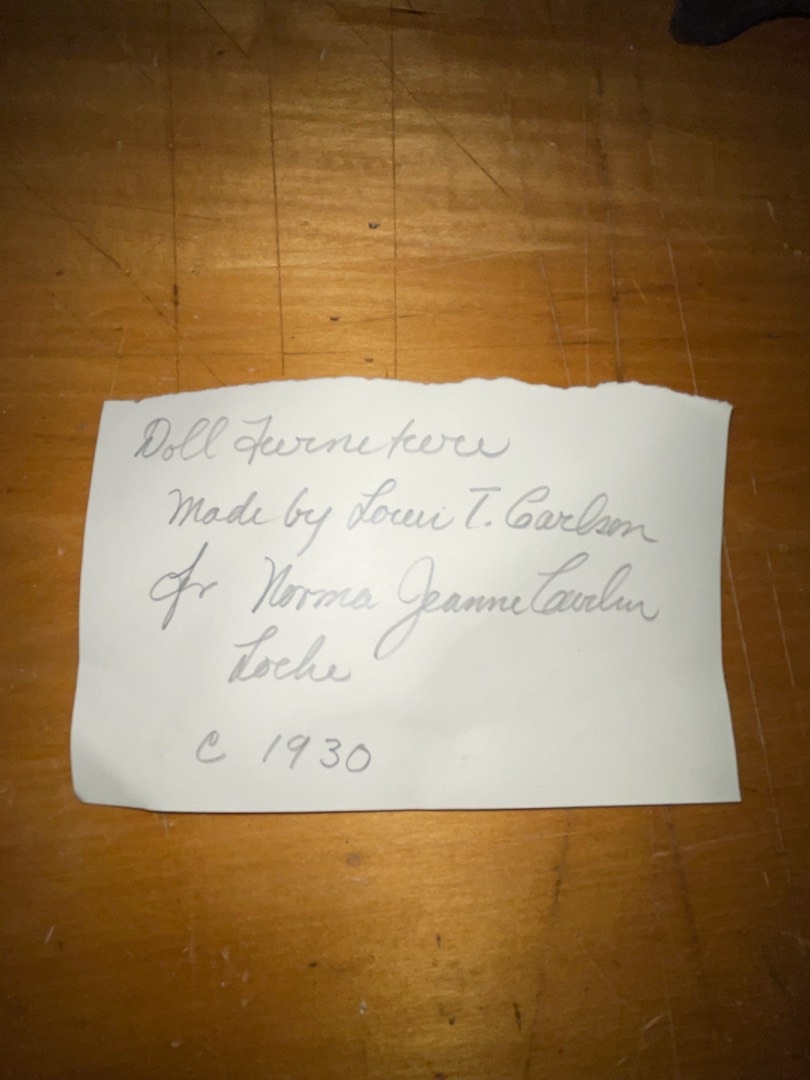 Doll Furneture
Made by Louis T. Carlson
for Norma Jeanne Carlson
Locke
C 1930